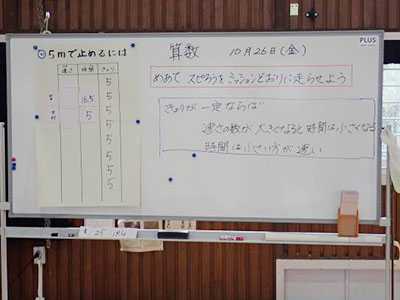 5mで止めるには
速さ 時間 きょり
5
5
16.5 5
5 5
5
5
5
5
算数 10月26日(金)
PLUS
めあて スピろうをミッションどおりに走らせよう
きょりが一定ならば
速さの数が大きくなると時間は小さくなる
時間は小さい方が速い